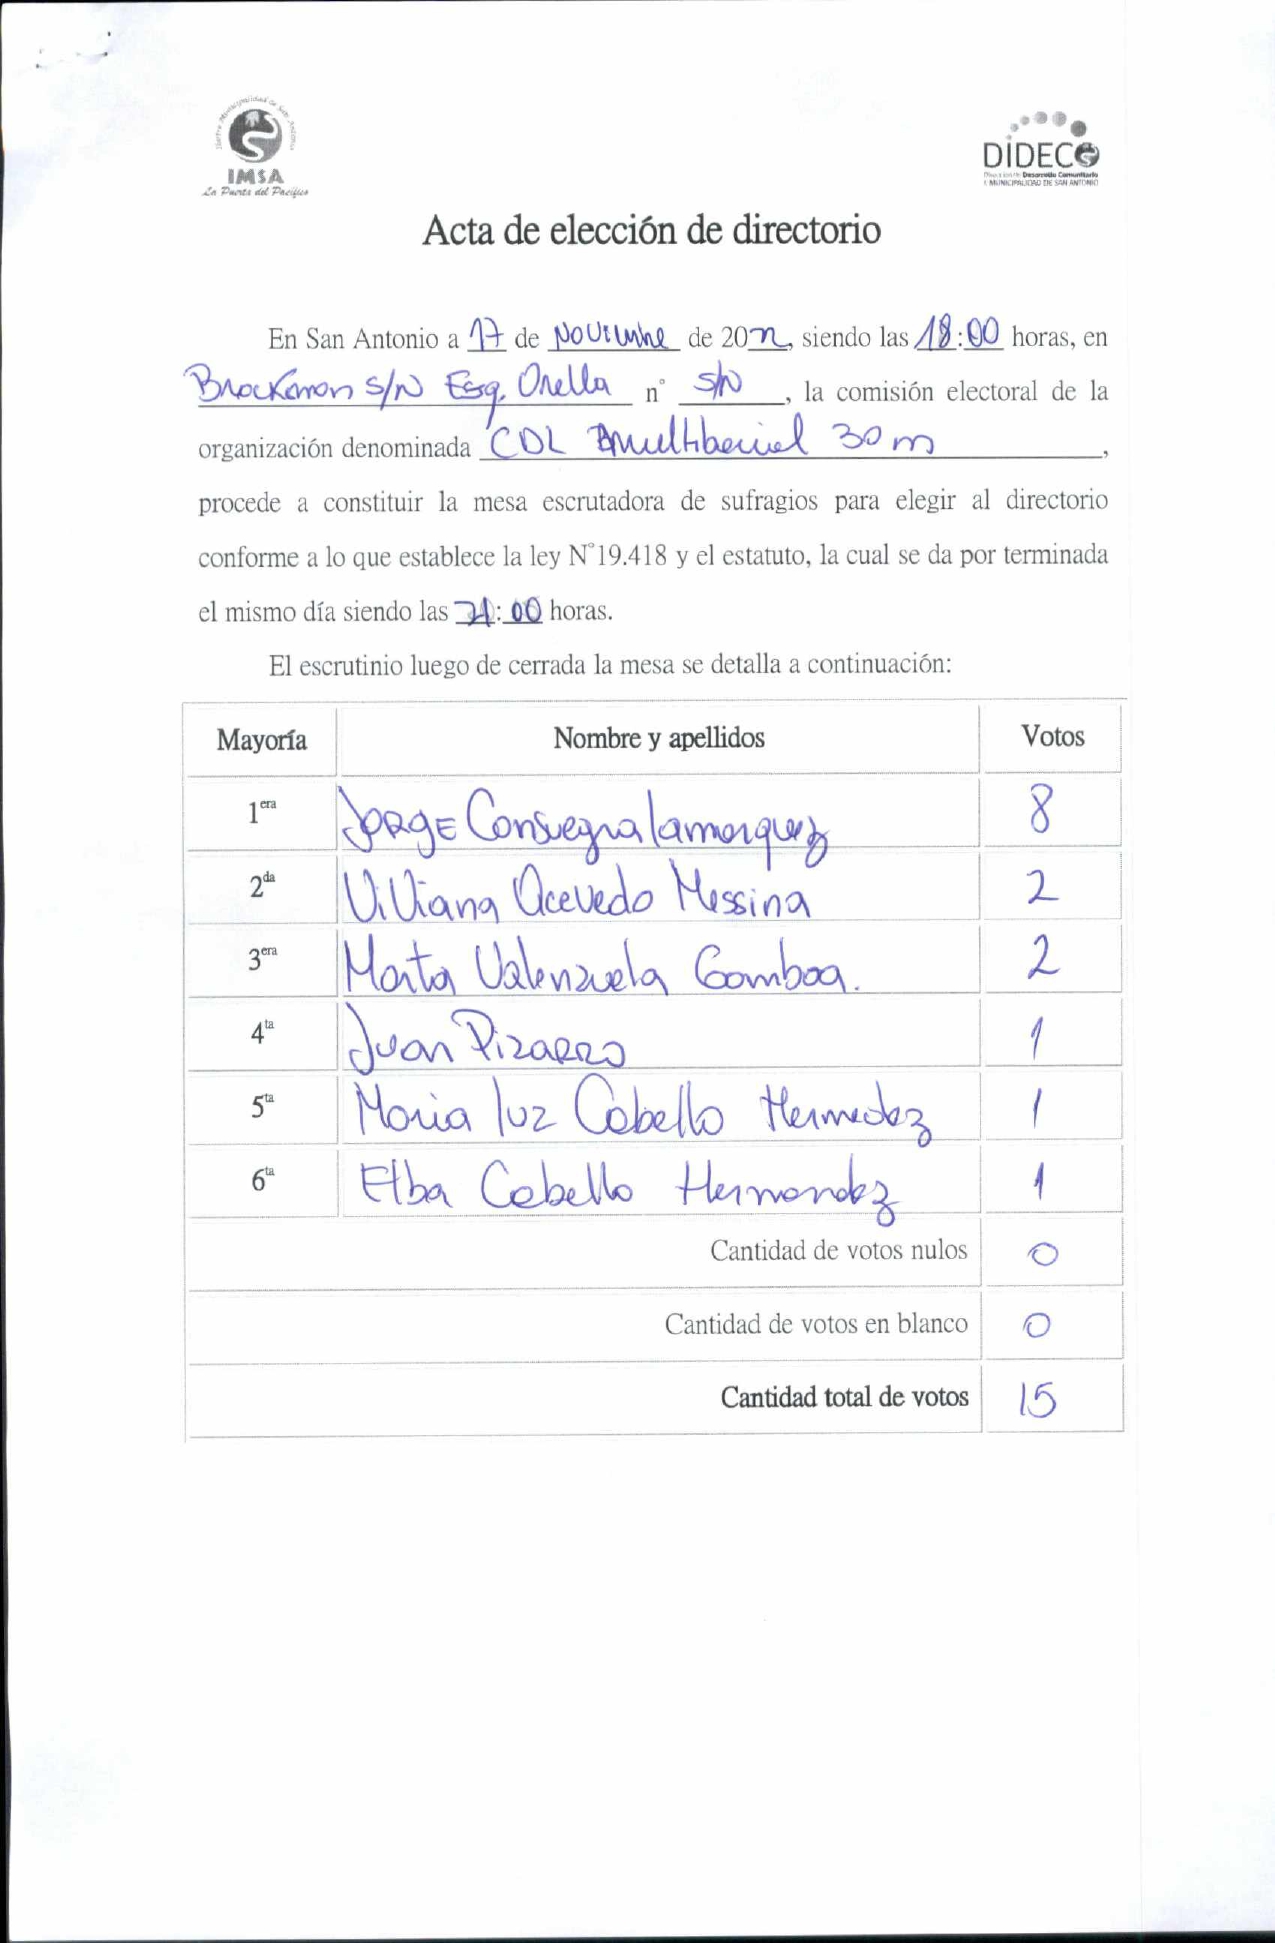 Ilustre Municipalidad de San Antonio
IMSA
La Puerta del Pacífico
DIDECO
Dirección de Desarrollo Comunitario
I MUNICIPALIDAD DE SAN ANTONIO
Acta de elección de directorio
En San Antonio a 17 de Noviembre de 2022, siendo las 18:00 horas, en
Brockman S/N Esq. Orella n° S/N, la comisión electoral de la
organización denominada CDL 30 m,
procede a constituir la mesa escrutadora de sufragios para elegir al directorio
conforme a lo que establece la ley N°19.418 y el estatuto, la cual se da por terminada
el mismo día siendo las 21:00 horas.
El escrutinio luego de cerrada la mesa se detalla a continuación:
Mayoría Nombre y apellidos Votos
1era Jorge Consuegra Lamarquez 8
2da Viviana Acevedo Messina 2
3era Marta Valenzuela Gamboa. 2
4ta Juan Pizarro 1
5ta Maria Luz Cabello 1
6ta Elba Cabello Hernandez 1
Cantidad de votos nulos 0
Cantidad de votos en blanco 0
Cantidad total de votos 15